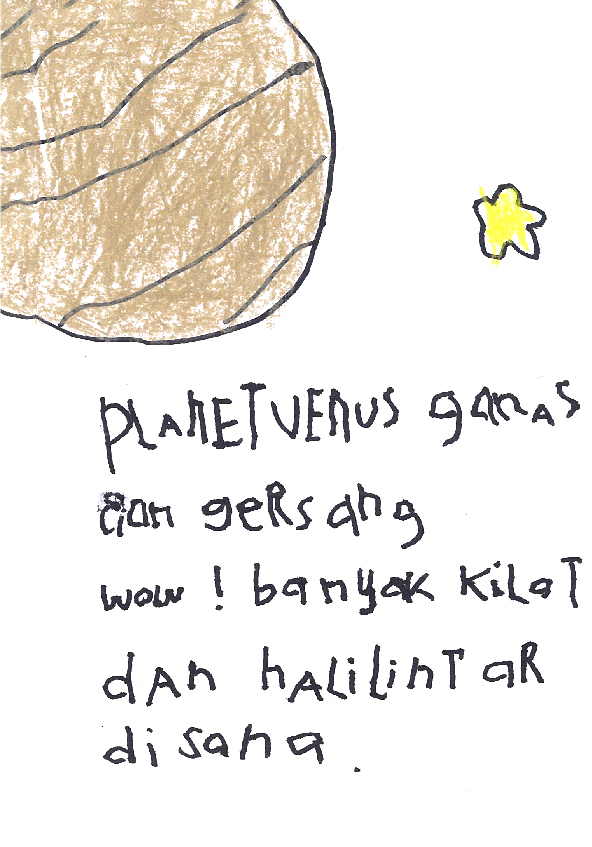 PLANET VENUS ganas
dan geRsang
wow ! banyak KiLaT
dAn hALiLinTaR
disana.